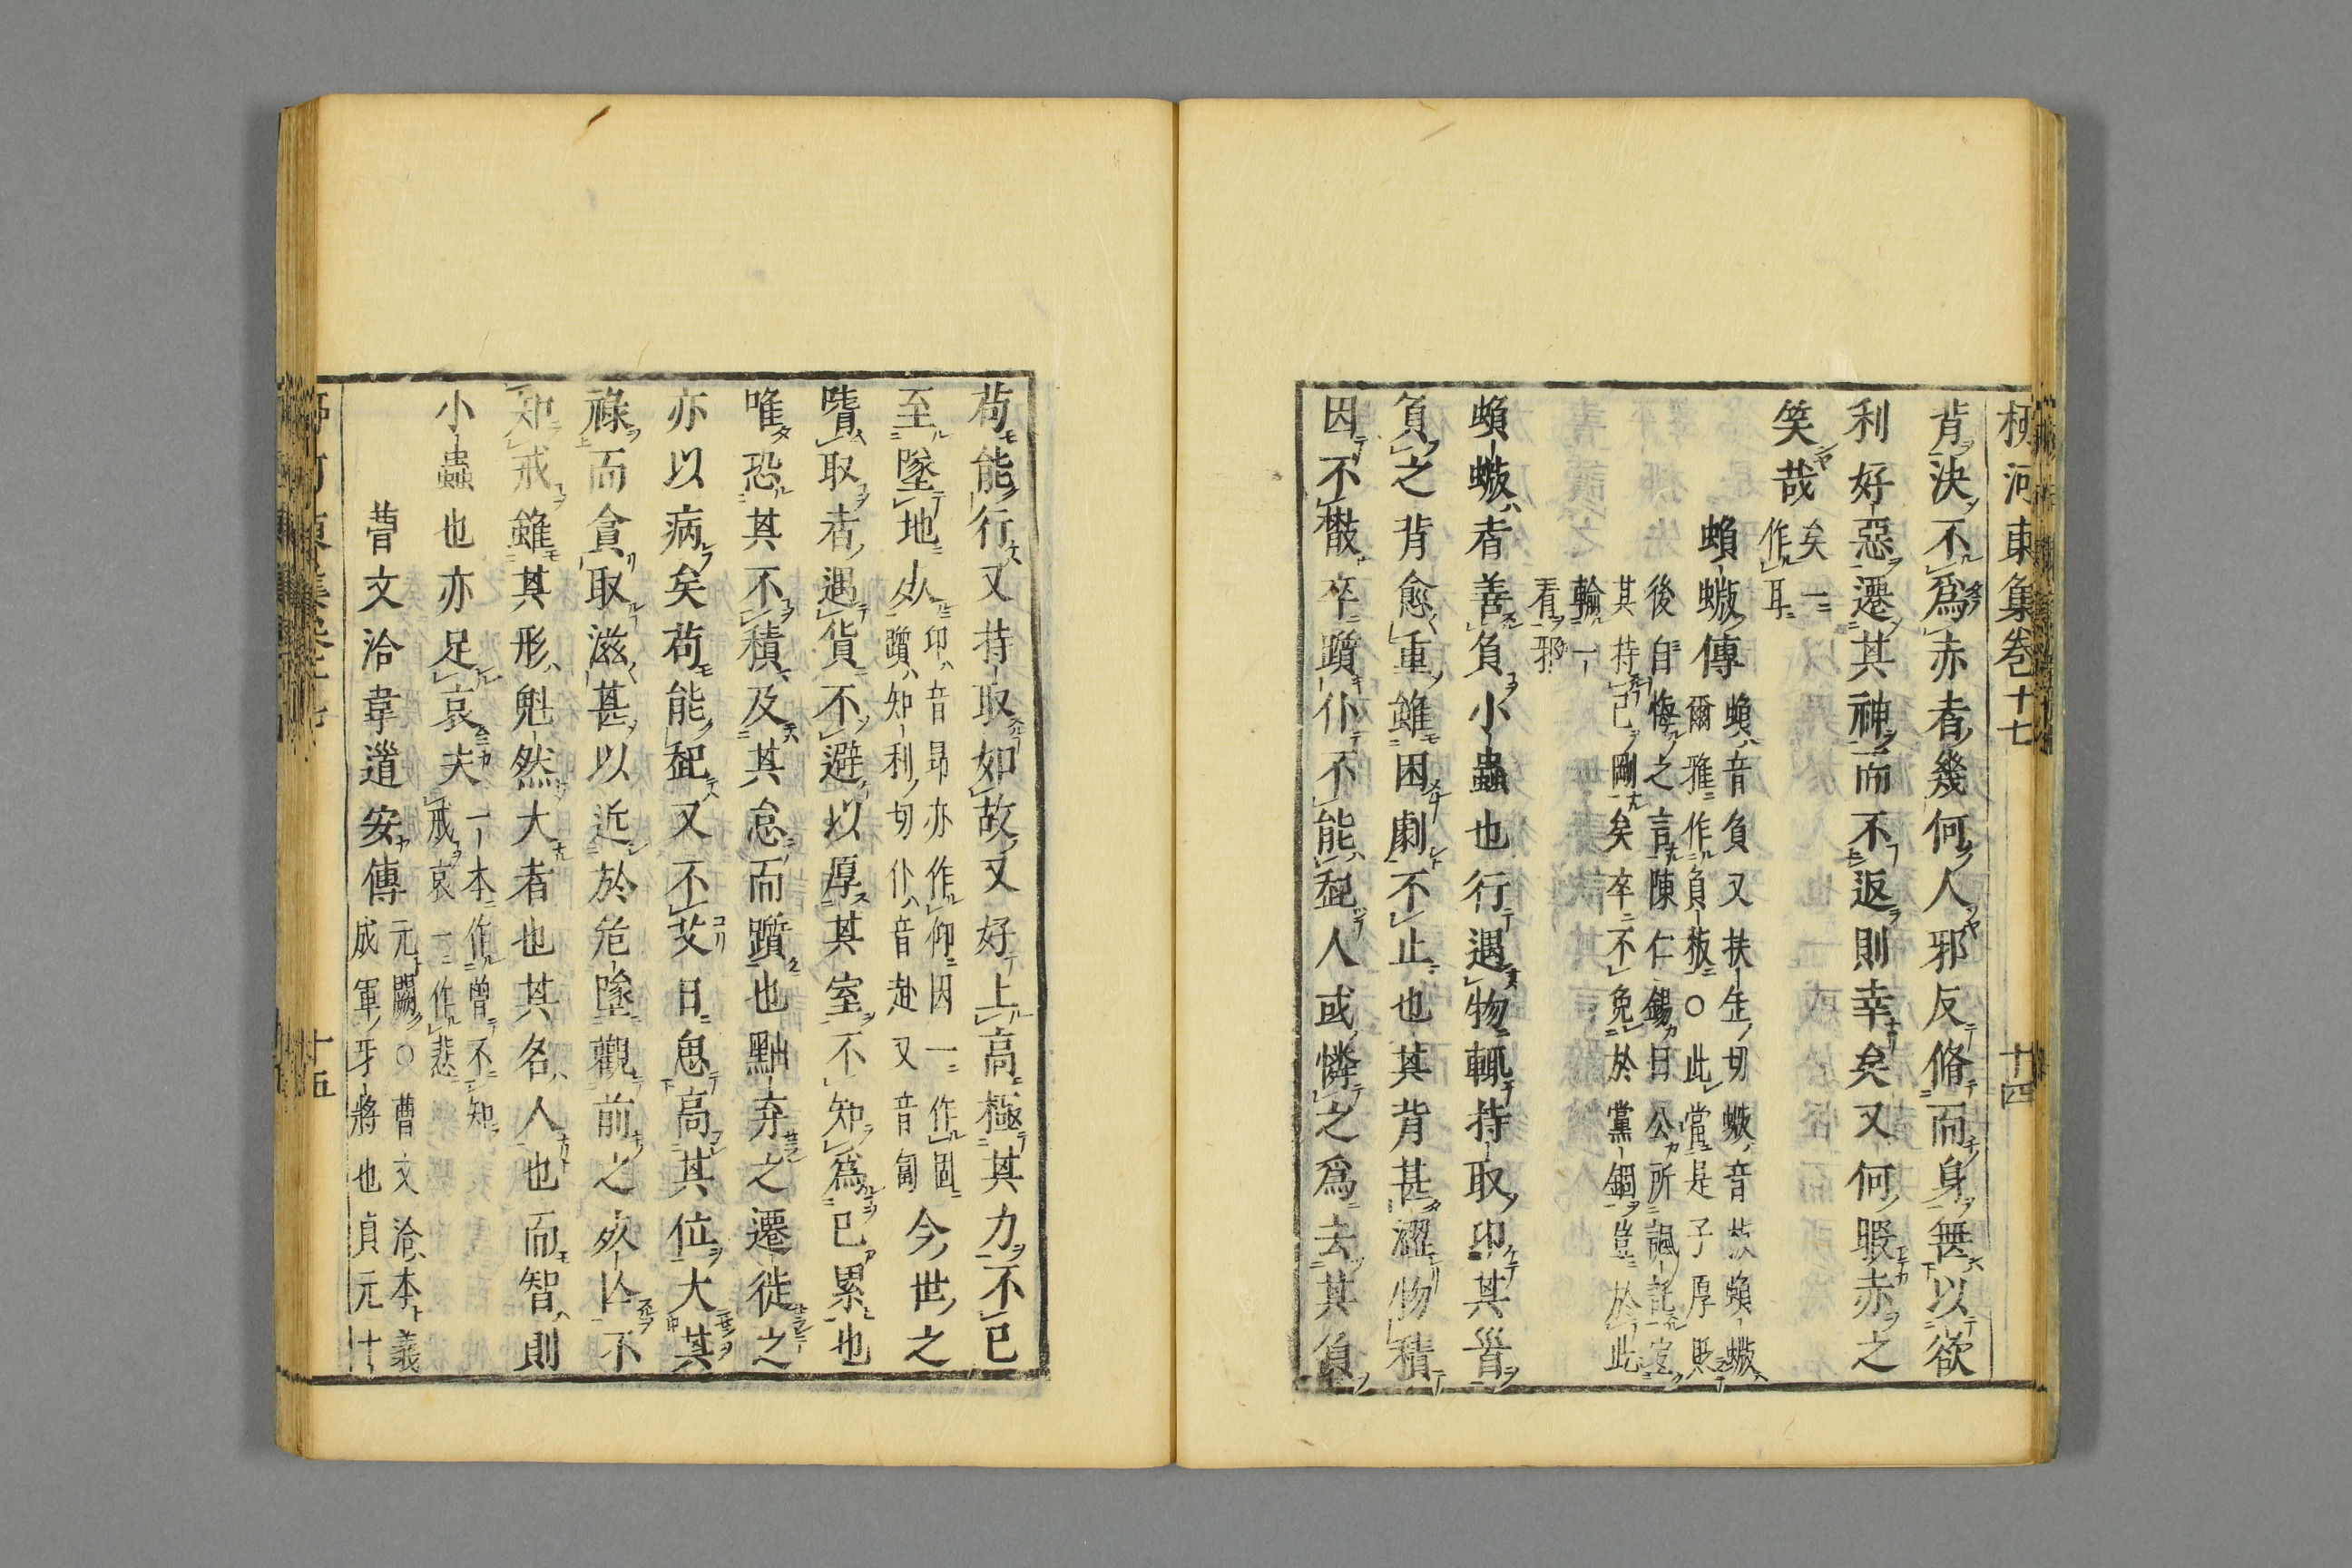 柳河東集卷十七 十四
背決不爲赤者幾何人邪反脩而身無以欲
利好惡遷其神而不返則幸矣又何暇赤之
笑哉矣一作耳
蝜蝂傳蝜音負又扶缶切蝂音板蝜蝂
爾雅作負版○此當是子厚貶
後自悔之言陳仁錫曰公所諷託寔
其持己剛矣卒不免於黨錮豈於此
輸一
看邪
蝜蝂者善負小蟲也行遇物輒持取卬其首
負之背愈重雖困劇不止也其背甚澀物積
因不散卒躓仆不能起人或憐之爲去其負
苟能行又持取如故又好上高極其力不已
至墜地死卬音昂亦作仰因一作固躓知利切仆音赴又音匐今世之
嗜取者遇貨不避以厚其室不知爲已累也
唯恐其不積及其怠而躓也黜弃之遷徙之
亦以病矣苟能起又不艾日思高其位大其
祿而貪取滋甚以近於危墜觀前之死亾不
知戒雖其形魁然大者也其名人也而智則
小蟲也亦足哀夫一本作曾不知戒哀一作悲
曹文洽韋道安傳元闕○曹文洽本義成軍牙將也貞元十
十五